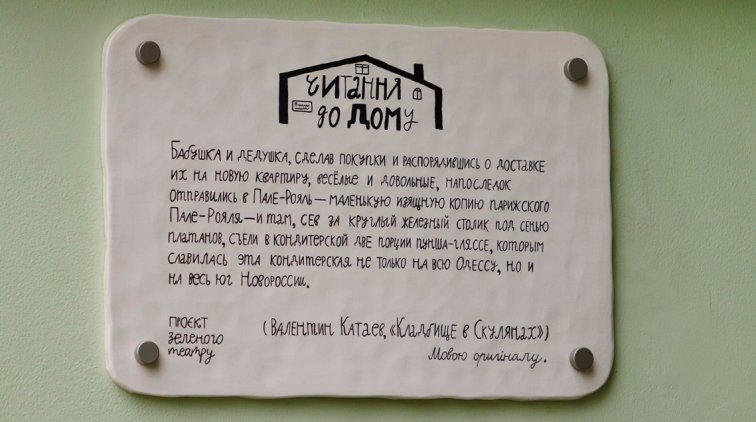 ЧИТАННЯ
ДО ДОМУ
БАБУШКА И ДЕДУШКА, СДЕЛАВ ПОКУПКИ И РАСПОРЯДИВШИСЬ О ДОСТАВКЕ
ИХ НА НОВУЮ КВАРТИРУ, ВЕСЁЛЫЕ И ДОВОЛЬНЫЕ, НАПОСЛЕДОК
ОТПРАВИЛИСЬ В ПАЛЕ-РОЯЛЬ — МАЛЕНЬКУЮ ИЗЯЩНУЮ КОПИЮ ПАРИЖСКОГО
ПАЛЕ-РОЯЛЯ — И ТАМ, СЕВ ЗА КРУГЛЫЙ ЖЕЛЕЗНЫЙ СТОЛИК ПОД СЕНЬЮ
ПЛАТАНОВ, СЪЕЛИ В КОНДИТЕРСКОЙ ДВЕ ПОРЦИИ ПУНША-ГЛЯССЕ, КОТОРЫМ
СЛАВИЛАСЬ ЭТА КОНДИТЕРСКАЯ НЕ ТОЛЬКО НА ВСЮ ОДЕССУ, НО И
НА ВЕСЬ ЮГ НОВОРОССИИ.
(ВАЛЕНТИН КАТАЕВ, «КЛАДБИЩЕ В СКУЛЯНАХ»)
Мовою оригіналу.
ПРОЄКТ
ЗЕЛЕНОГО
ТЕАТРУ